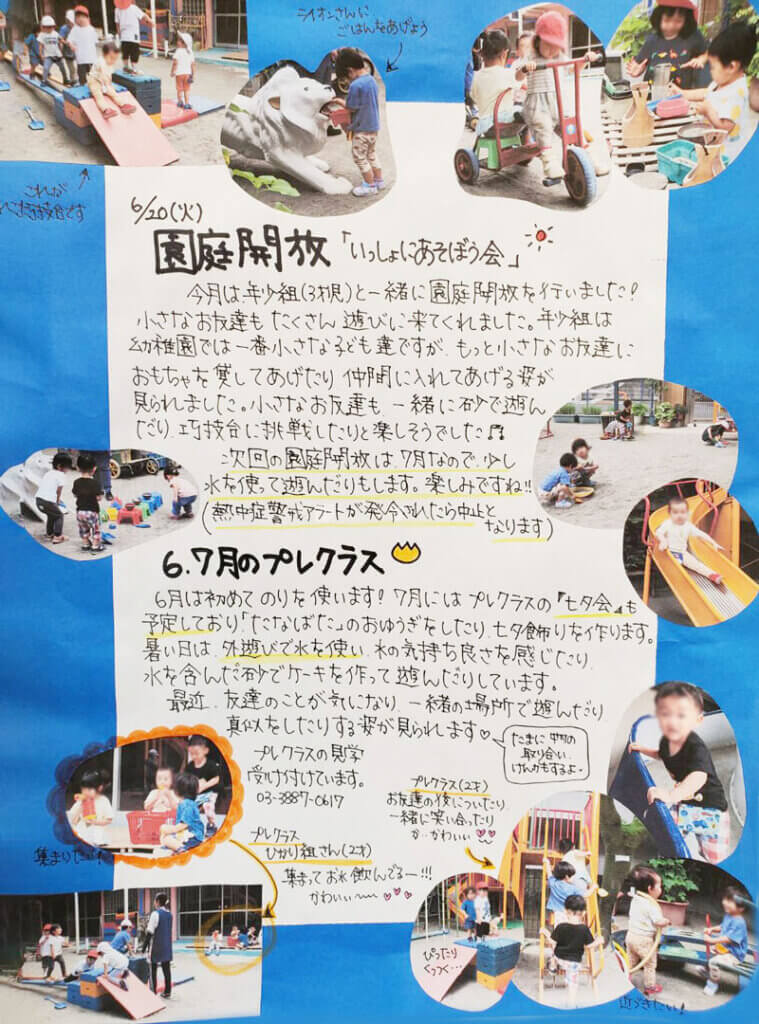 ライオンさんに
ごはんをあげよう
これが
巧技台です
6/20(火)
園庭開放「いっしょにあそぼう会」
今月は年少組(3才児)と一緒に園庭開放を行いました!
小さなお友達もたくさん遊びに来てくれました。年少組は
幼稚園では一番小さな子ども達ですが、もっと小さなお友達に
おもちゃを貸してあげたり、仲間に入れてあげる姿が
見られました。小さなお友達も、一緒に砂で遊ん
だり、巧技台に挑戦したりと楽しそうでした♬
次回の園庭開放は、7月なので、少し
水を使って遊んだりもします。楽しみですね!!
(熱中症警戒アラートが発令されたら中止と
なります)
6.7月のプレクラス
6月は初めてのりを使います!7月にはプレクラスの『七夕会』も
予定しており「たなばた」のおゆうぎをしたり、七夕飾りを作ります。
暑い日は、外遊びで水を使い、水の気持ち良さを感じたり、
水を含んだ砂でケーキを作って遊んだりしています。
最近、友達のことが気になり、一緒の場所で遊んだり
真似をしたりする姿が見られます♡
たまに物の
取り合い、
けんかもするよ。
プレクラスの見学
受け付けています。
03-3887-0617
プレクラス(2才)
お友達の後についたり、
一緒に笑い合ったり
か…かわいい♡♡
プレクラス
ひかり組さん(2才)
集まってお水飲んでるー!!!
かわいい〜♡♡♡
集まりだー!
ぴったり
くっつく…
近づきたい!